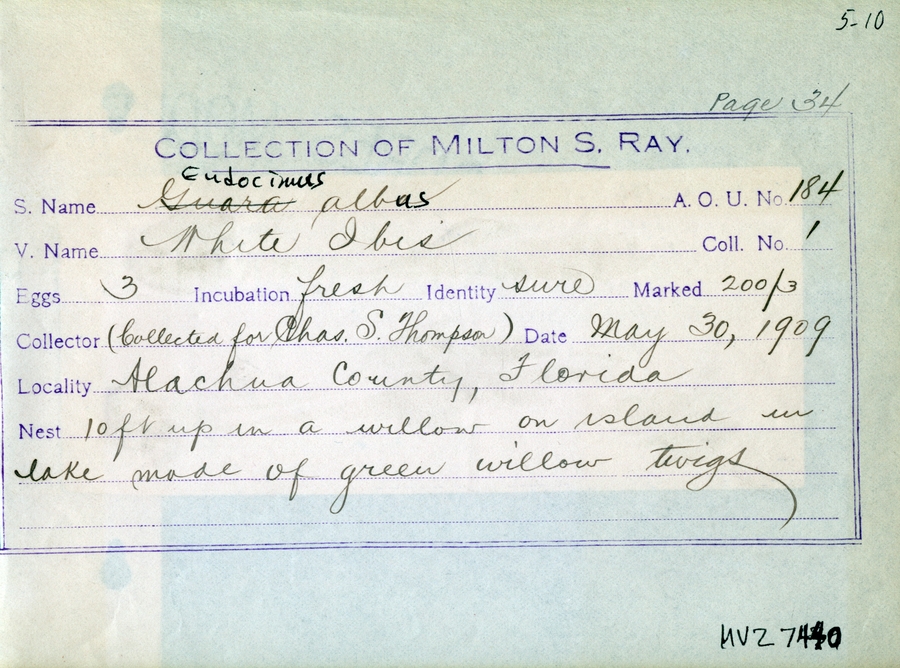 5-10
Page 34
COLLECTION OF MILTON S. RAY.
Eudocimus
S. Name Guara albus A. O. U. No. 184
V. Name White Ibis Coll. No. 1
Eggs 3 Incubation fresh Identity sure Marked 200/3
Collector (Collected for Chas. S. Thompson) Date May 30, 1909
Locality Alachua County, Florida
Nest 10 ft up in a willow on island in
lake made of green willow twigs
MVZ